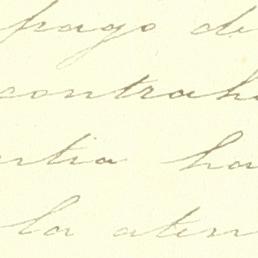 pago de
contrah
ntia ha
la aten